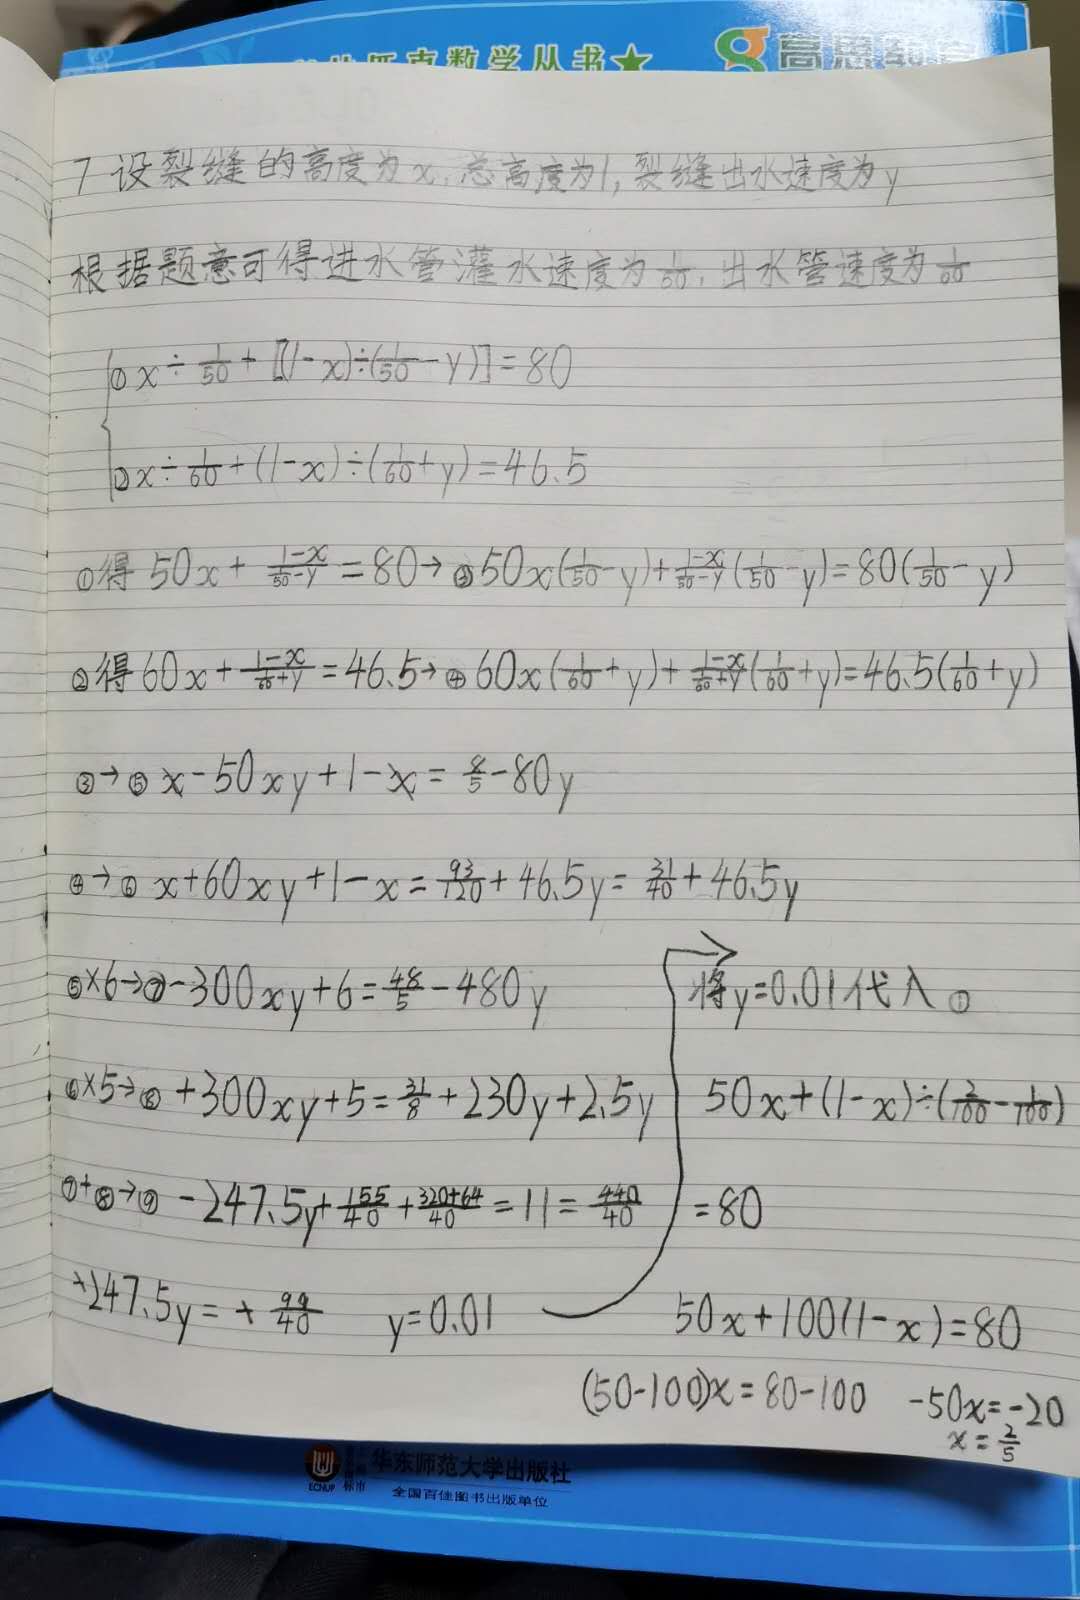 数学丛书★ 高思教育
7 设裂缝的高度为x,总高度为1,裂缝出水速度为y
根据题意可得进水管灌水速度为1/50,出水管速度为1/60
①x÷1/50+[(1-x)÷(1/50-y)]=80
②x÷1/60+(1-x)÷(1/60+y)=46.5
①得 50x+(1-x)/(1/50-y)=80→③50x(1/50-y)+(1-x)/(1/50-y)(1/50-y)=80(1/50-y)
②得60x+(1-x)/(1/60+y)=46.5→④60x(1/60+y)+(1-x)/(1/60+y)(1/60+y)=46.5(1/60+y)
③→⑤ x-50xy+1-x=8/5-80y
④→⑥ x+60xy+1-x=93/120+46.5y=31/40+46.5y
⑤×6→⑦-300xy+6=48/5-480y
⑥×5→⑧+300xy+5=31/8+230y+2.5y
⑦+⑧→⑨ -247.5y+155/40+(320+64)/40=11=440/40
+247.5y=+99/40 y=0.01
将y=0.01代入①
50x+(1-x)÷(2/100-1/100)
=80
50x+100(1-x)=80
(50-100)x=80-100 -50x=-20
x=2/5
ECNUP 华东师范大学出版社
全国百佳图书出版单位